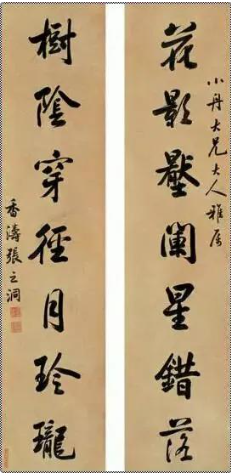 小丹大兄大人雅属
花影壓闌星錯落
樹陰穿徑月玲瓏
香濤張之洞